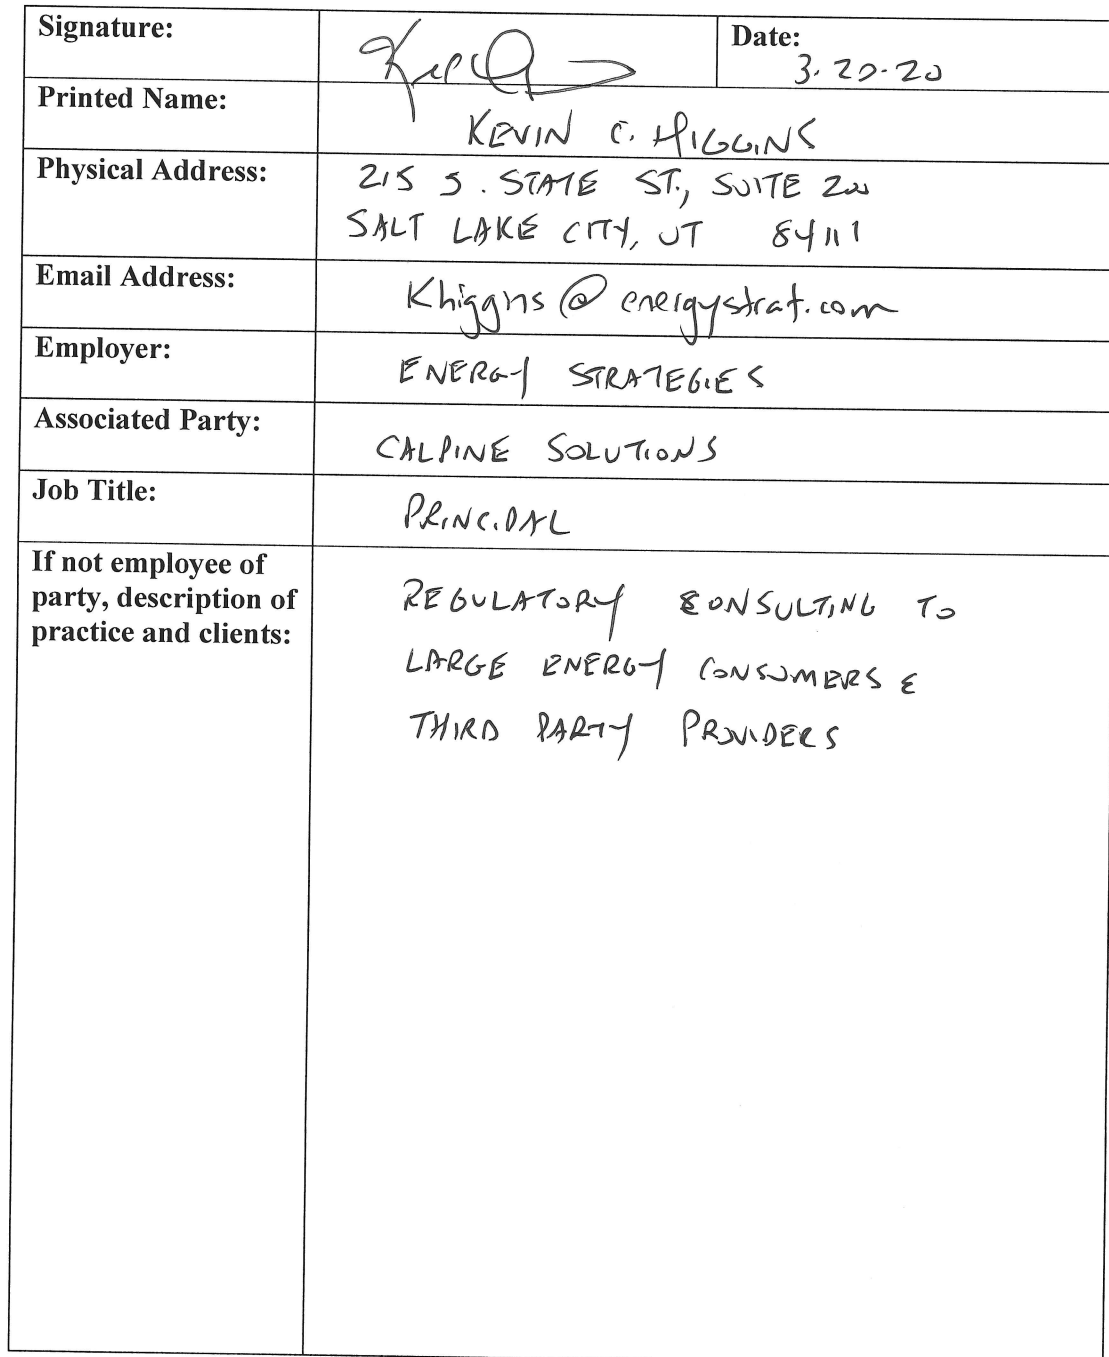 Signature:
Date:
3.20.20
Printed Name:
KEVIN C. HIGGINS
Physical Address:
215 S. STATE ST., SUITE 200
SALT LAKE CITY, UT 84111
Email Address:
Khiggins@energystrat.com
Employer:
ENERGY STRATEGIES
Associated Party:
CALPINE SOLUTIONS
Job Title:
PRINCIPAL
If not employee of
party, description of
practice and clients:
REGULATORY CONSULTING TO
LARGE ENERGY CONSUMERS &
THIRD PARTY PROVIDERS